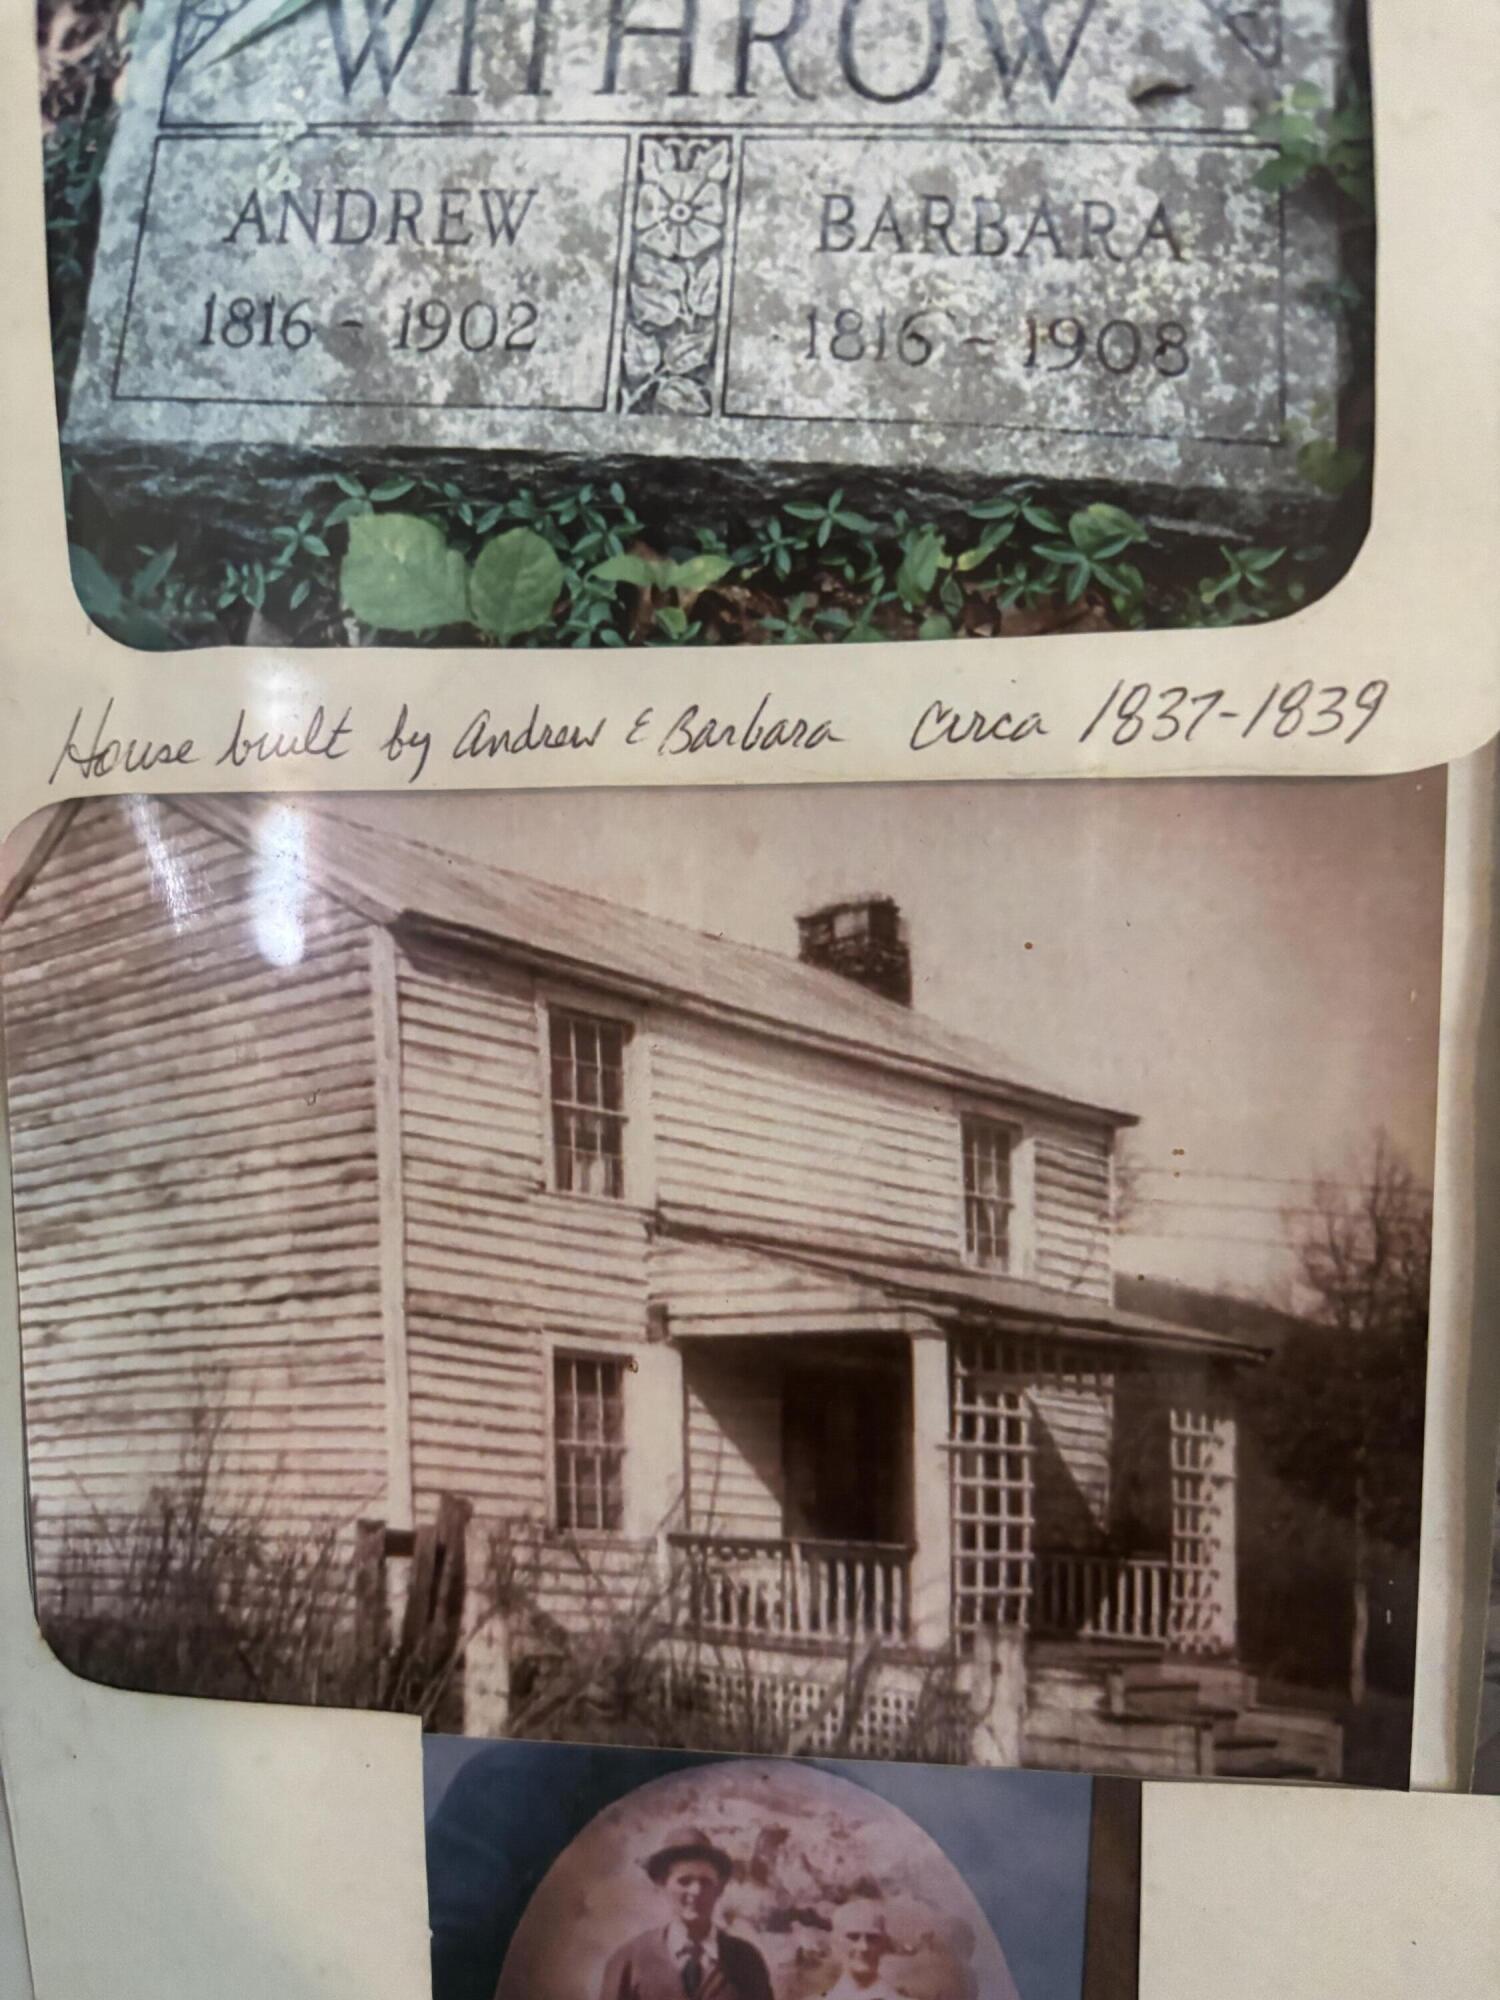 WITHROW
ANDREW
1816 - 1902
BARBARA
1816 - 1908
House built by Andrew & Barbara Circa 1837-1839